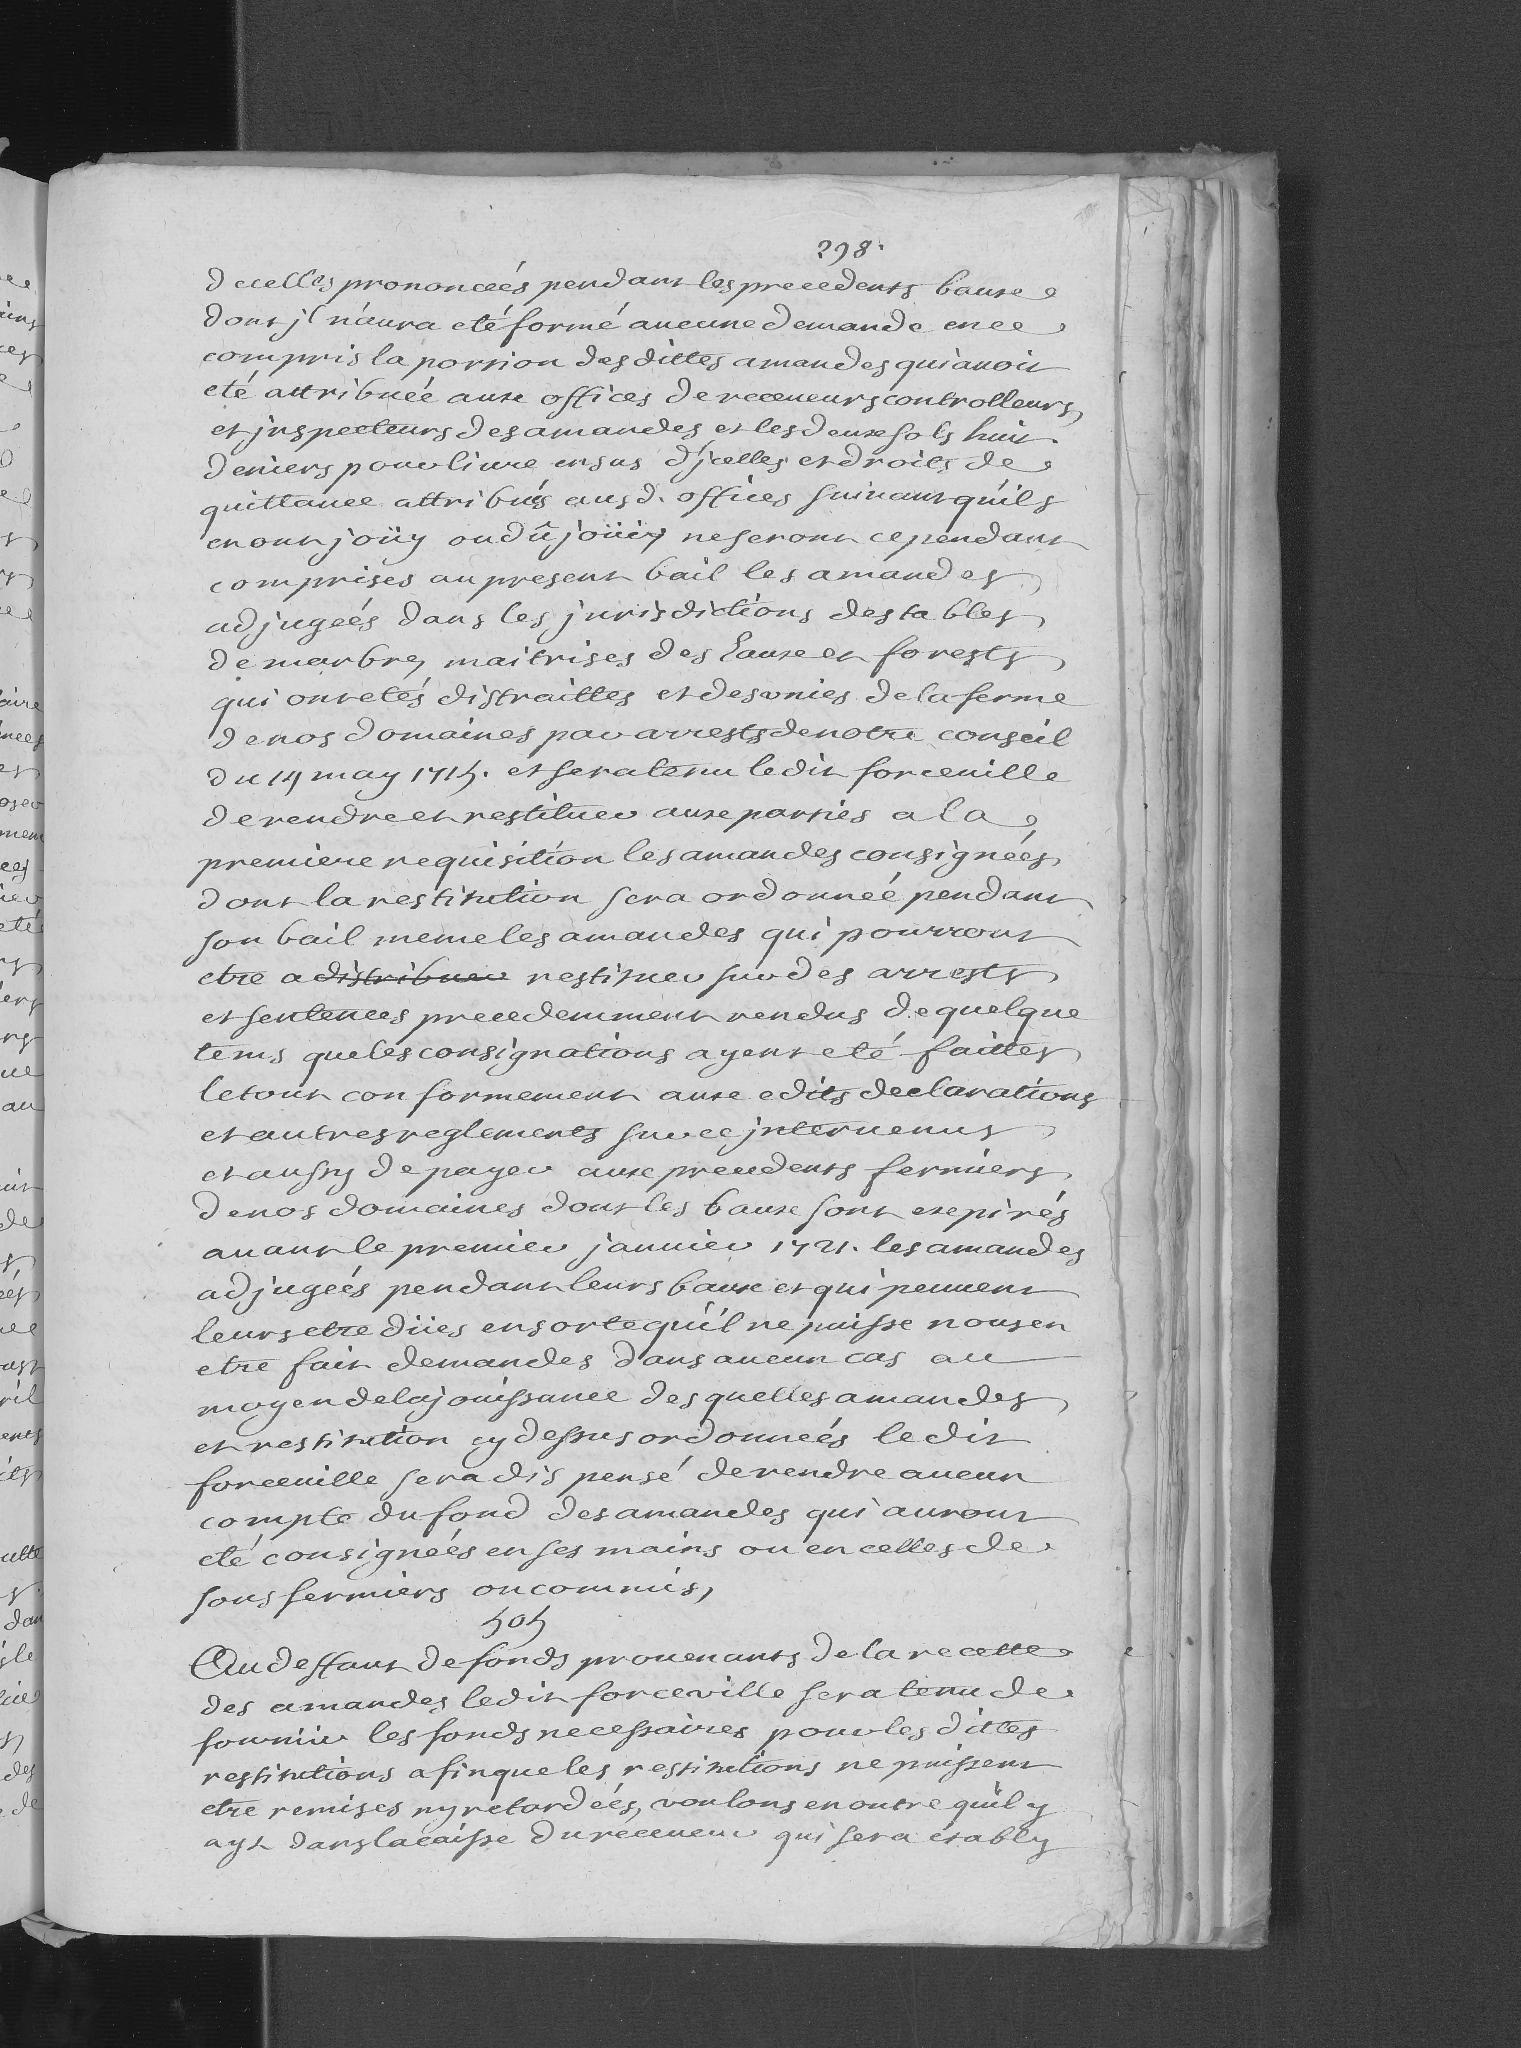 298.
de celles prononcées pendant les precedents baux
dont jl n'aura eté formé aucune demande en ce
compris la portion des dittes amandes qui avoit
eté attribuée aux offices de receveurs controlleurs,
et jnspecteurs des amandes et les deux sols huit
deniers pour livre en sus d'jcelles et droits de
quittance attribués ausd. offices suivant qu'ils
en ont joüy ou dû joüir, ne seront cependant
comprises au present bail les amandes
adjugées dans les jurisdictions des tables
de marbre, maitrises des Eaux et forests
qui ont etés distraittes et desunies de la ferme
de nos domaines par arrests de notre conseil
du 14 may 1715. et sera tenu ledit forceville
de rendre et restituer aux parties a la
premiere requisition les amandes consignées,
dont la restitution sera ordonneé pendant
son bail meme les amandes qui pourront
etre a distribuer restituer sur des arrests
et sentences precedemment rendus de quelque
tems que les consignations ayent eté faittes
le tout conformement aux edits declarations
et autres reglements sur ce jntervenus
et aussy de payer aux precedents fermiers
de nos domaines dont les baux sont expirés
avant le premier janvier 1721. les amandes
adjugées pendant leurs baux et qui peuvent
leurs etre düees en sorte qu'il ne puisse nous en
etre fait demandes dans aucun cas au
moyen de la jouissance des quelles amandes
et restitution cy dessus ordonneés ledit
forceville sera dispensé de rendre aucun
compte du fond des amandes qui auront
eté consigneés en ses mains ou en celles de
sous fermiers ou commis,
505
Au deffaut de fonds provenants de la recette
des amandes ledit forceville sera tenu de
fournir les fonds necessaires pour les dittes
restitutions afin que les restitutions ne puissent
etre remises ny retardées, voulons en outre qu'il y
ayt dans la caisse du receveur qui sera etably